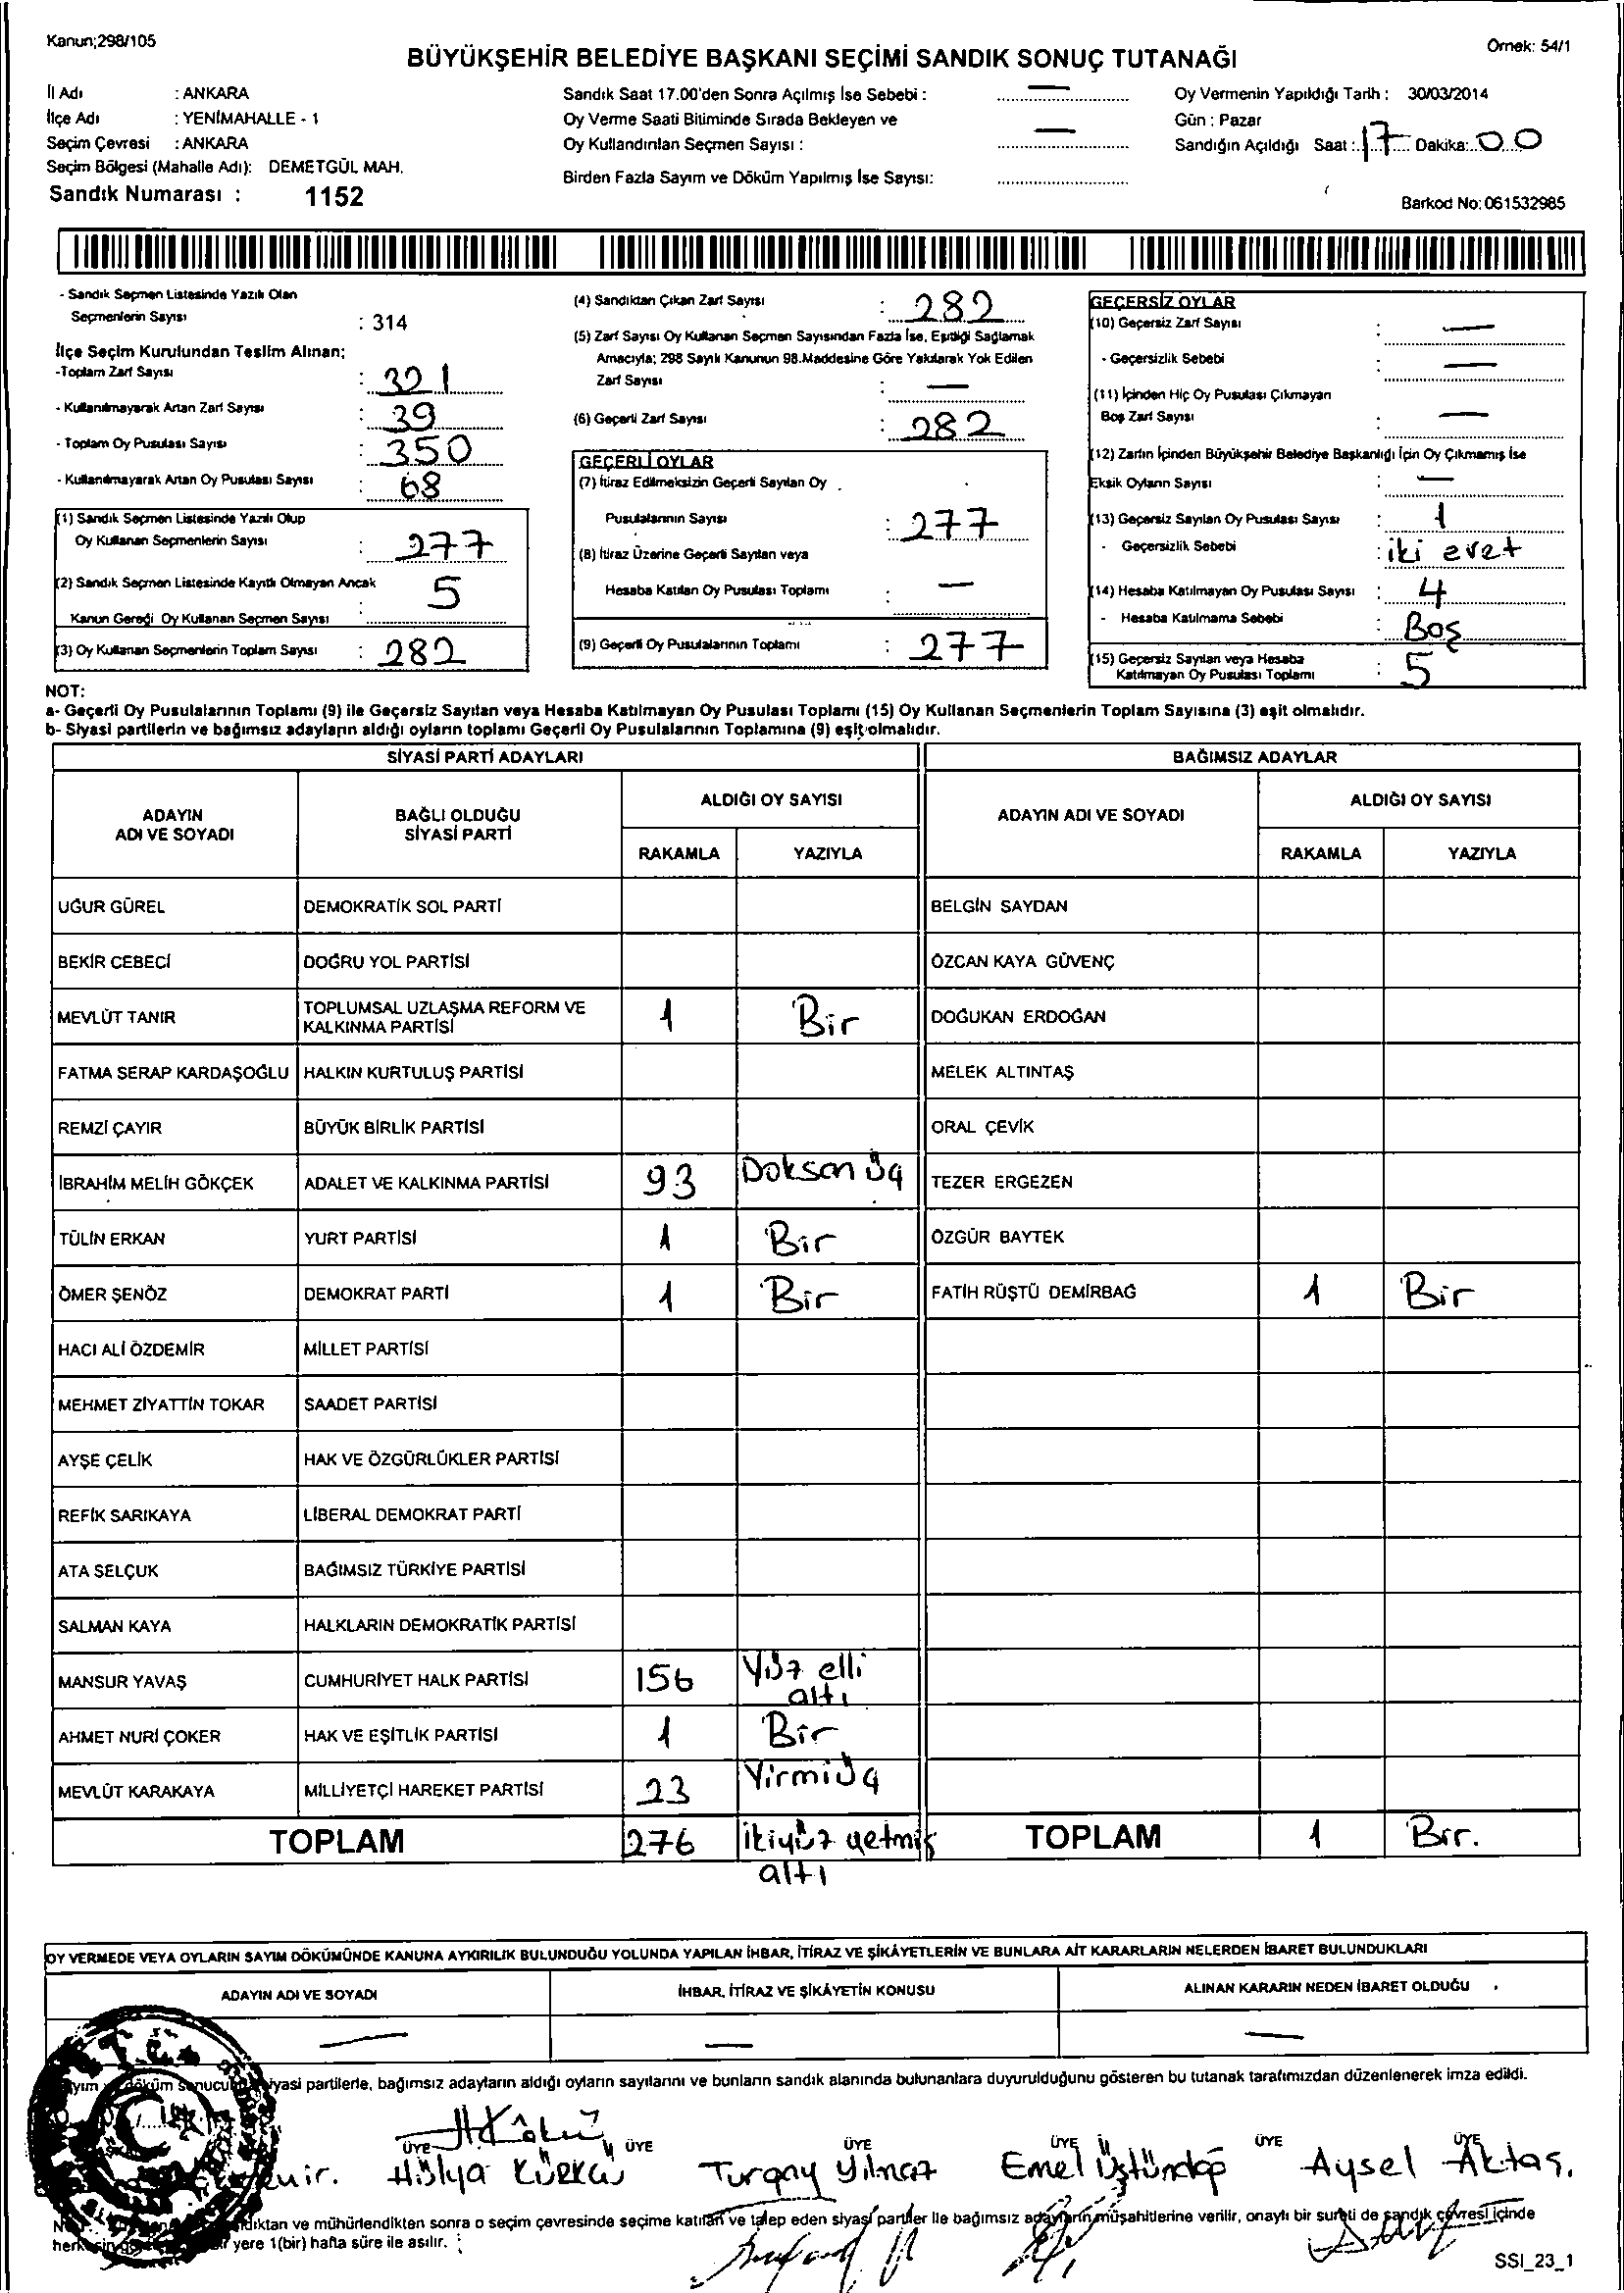 Kanun;298/105
BÜYÜKŞEHİR BELEDİYE BAŞKANI SEÇİMİ SANDIK SONUÇ TUTANAĞI
Örnek: 54/1
İl Adı : ANKARA
İlçe Adı : YENİMAHALLE - 1
Seçim Çevresi : ANKARA
Seçim Bölgesi (Mahalle Adı): DEMETGÜL MAH.
Sandık Numarası : 1152
Sandık Saat 17.00'den Sonra Açılmış İse Sebebi : —
Oy Verme Saati Bitiminde Sırada Bekleyen ve
Oy Kullandırılan Seçmen Sayısı : —
Birden Fazla Sayım ve Döküm Yapılmış İse Sayısı:
Oy Vermenin Yapıldığı Tarih : 30/03/2014
Gün : Pazar
Sandığın Açıldığı Saat : 17 Dakika: 00
Barkod No: 061532985
- Sandık Seçmen Listesinde Yazılı Olan
Seçmenlerin Sayısı : 314
İlçe Seçim Kurulundan Teslim Alınan;
-Toplam Zarf Sayısı : 321
- Kullanılmayarak Artan Zarf Sayısı : 39
- Toplam Oy Pusulası Sayısı : 350
- Kullanılmayarak Artan Oy Pusulası Sayısı : 68
(1) Sandık Seçmen Listesinde Yazılı Olup
Oy Kullanan Seçmenlerin Sayısı : 277
(2) Sandık Seçmen Listesinde Kayıtlı Olmayan Ancak
Kanun Gereği Oy Kullanan Seçmen Sayısı : 5
(3) Oy Kullanan Seçmenlerin Toplam Sayısı : 282
(4) Sandıktan Çıkan Zarf Sayısı : 282
(5) Zarf Sayısı Oy Kullanan Seçmen Sayısından Fazla İse, Eşitliği Sağlamak
Amacıyla; 298 Sayılı Kanunun 98.Maddesine Göre Yakılarak Yok Edilen
Zarf Sayısı : —
(6) Geçerli Zarf Sayısı : 282
GEÇERLİ OYLAR
(7) İtiraz Edilmeksizin Geçerli Sayılan Oy
Pusulalarının Sayısı : 277
(8) İtiraz Üzerine Geçerli Sayılan veya
Hesaba Katılan Oy Pusulası Toplamı : —
(9) Geçerli Oy Pusulalarının Toplamı : 277
GEÇERSİZ OYLAR
(10) Geçersiz Zarf Sayısı : —
- Geçersizlik Sebebi : —
(11) İçinden Hiç Oy Pusulası Çıkmayan
Boş Zarf Sayısı : —
(12) Zarfın İçinden Büyükşehir Belediye Başkanlığı İçin Oy Çıkmamış İse
Eksik Oyların Sayısı : —
(13) Geçersiz Sayılan Oy Pusulası Sayısı : 1
- Geçersizlik Sebebi : iki evet
(14) Hesaba Katılmayan Oy Pusulası Sayısı : 4
- Hesaba Katılmama Sebebi : Boş
(15) Geçersiz Sayılan veya Hesaba
Katılmayan Oy Pusulası Toplamı : 5
NOT:
a- Geçerli Oy Pusulalarının Toplamı (9) ile Geçersiz Sayılan veya Hesaba Katılmayan Oy Pusulası Toplamı (15) Oy Kullanan Seçmenlerin Toplam Sayısına (3) eşit olmalıdır.
b- Siyasi partilerin ve bağımsız adayların aldığı oyların toplamı Geçerli Oy Pusulalarının Toplamına (9) eşit olmalıdır.
SİYASİ PARTİ ADAYLARI BAĞIMSIZ ADAYLAR
ADAYIN ADI VE SOYADI BAĞLI OLDUĞU SİYASİ PARTİ ALDIĞI OY SAYISI ADAYIN ADI VE SOYADI ALDIĞI OY SAYISI
RAKAMLA YAZIYLA RAKAMLA YAZIYLA
UĞUR GÜREL DEMOKRATİK SOL PARTİ BELGİN SAYDAN
BEKİR CEBECİ DOĞRU YOL PARTİSİ ÖZCAN KAYA GÜVENÇ
MEVLÜT TANIR TOPLUMSAL UZLAŞMA REFORM VE KALKINMA PARTİSİ 1 Bir DOĞUKAN ERDOĞAN
FATMA SERAP KARDAŞOĞLU HALKIN KURTULUŞ PARTİSİ MELEK ALTINTAŞ
REMZİ ÇAYIR BÜYÜK BİRLİK PARTİSİ ORAL ÇEVİK
İBRAHİM MELİH GÖKÇEK ADALET VE KALKINMA PARTİSİ 93 Doksan üç TEZER ERGEZEN
TÜLİN ERKAN YURT PARTİSİ 1 Bir ÖZGÜR BAYTEK
ÖMER ŞENÖZ DEMOKRAT PARTİ 1 Bir FATİH RÜŞTÜ DEMİRBAĞ 1 Bir
HACI ALİ ÖZDEMİR MİLLET PARTİSİ
MEHMET ZİYATTİN TOKAR SAADET PARTİSİ
AYŞE ÇELİK HAK VE ÖZGÜRLÜKLER PARTİSİ
REFİK SARIKAYA LİBERAL DEMOKRAT PARTİ
ATA SELÇUK BAĞIMSIZ TÜRKİYE PARTİSİ
SALMAN KAYA HALKLARIN DEMOKRATİK PARTİSİ
MANSUR YAVAŞ CUMHURİYET HALK PARTİSİ 156 Yüz elli altı
AHMET NURİ ÇOKER HAK VE EŞİTLİK PARTİSİ 1 Bir
MEVLÜT KARAKAYA MİLLİYETÇİ HAREKET PARTİSİ 23 Yirmi üç
TOPLAM 276 ikiyüz yetmiş altı TOPLAM 1 Bir.
OY VERMEDE VEYA OYLARIN SAYIM DÖKÜMÜNDE KANUNA AYKIRILIK BULUNDUĞU YOLUNDA YAPILAN İHBAR, İTİRAZ VE ŞİKÂYETLERİN VE BUNLARA AİT KARARLARIN NELERDEN İBARET BULUNDUKLARI
ADAYIN ADI VE SOYADI İHBAR, İTİRAZ VE ŞİKÂYETİN KONUSU ALINAN KARARIN NEDEN İBARET OLDUĞU
— — —
siyasi partilerle, bağımsız adayların aldığı oyların sayılarını ve bunların sandık alanında bulunanlara duyurulduğunu gösteren bu tutanak tarafımızdan düzenlenerek imza edildi.
ÜYE ÜYE ÜYE ÜYE ÜYE ÜYE
Hülya Kürkcü Turgay Yılmaz Emel Üstündağ Aysel Aktaş.
sonra o seçim çevresinde seçime katılan ve talep eden siyasi partiler ile bağımsız adayların müşahitlerine verilir, onaylı bir sureti de sandık çevresi içinde
yere 1(bir) hafta süre ile asılır.
SSI_23_1